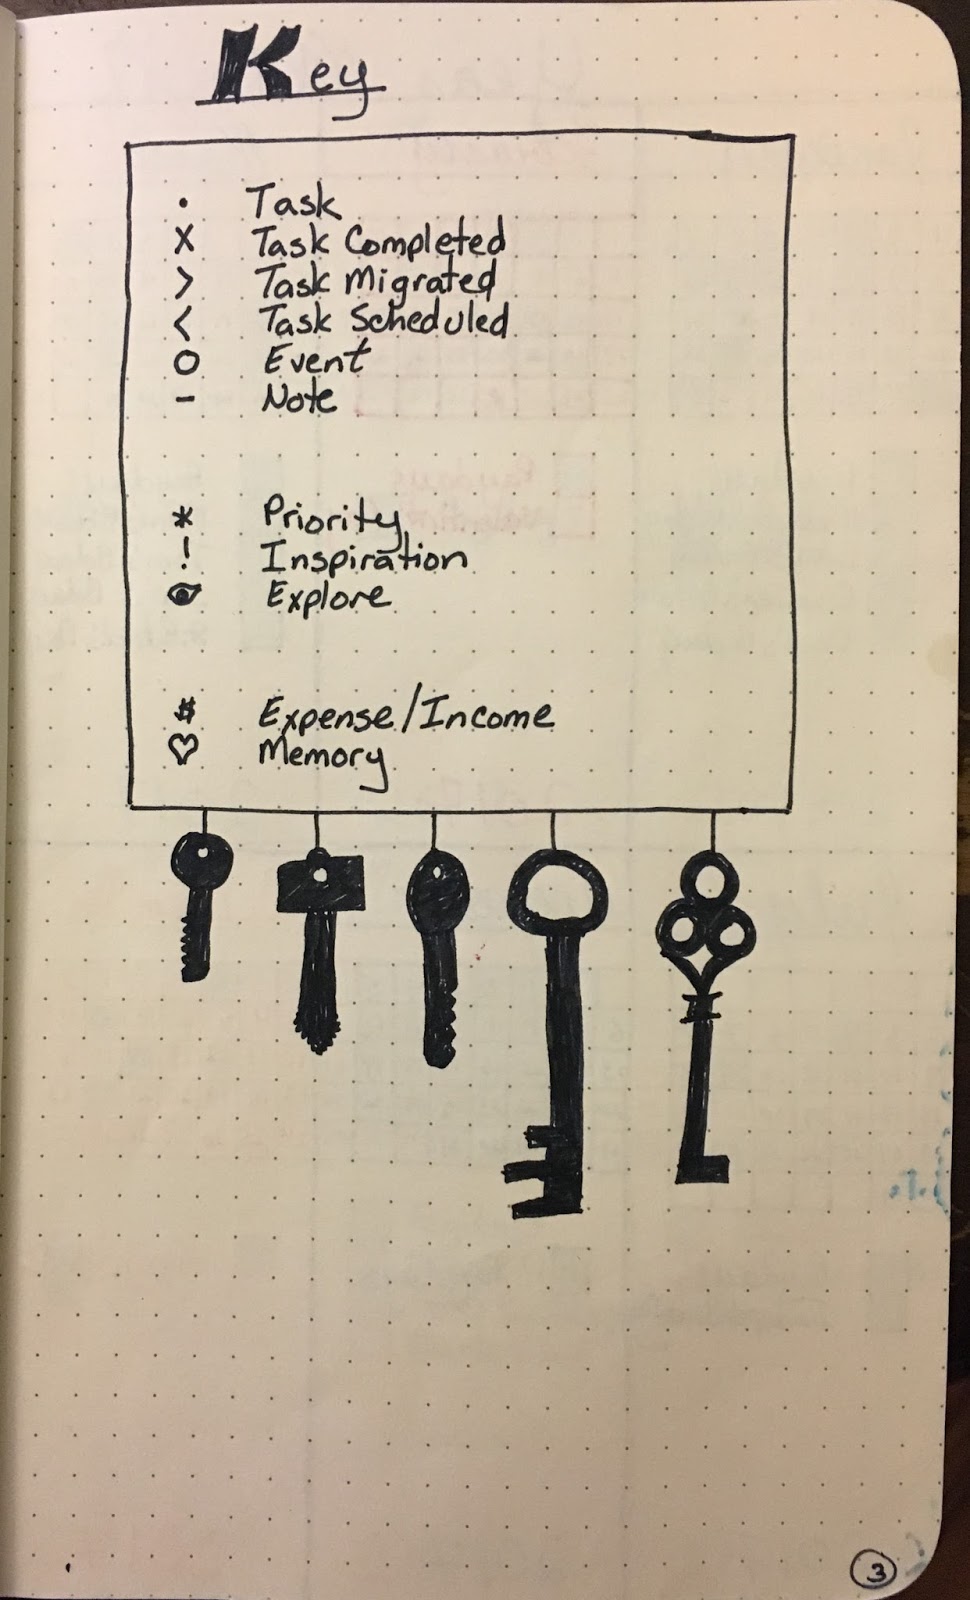 Key
• Task
X Task Completed
> Task Migrated
< Task Scheduled
O Event
– Note
* Priority
! Inspiration
Explore
$ Expense/Income
♡ Memory
3